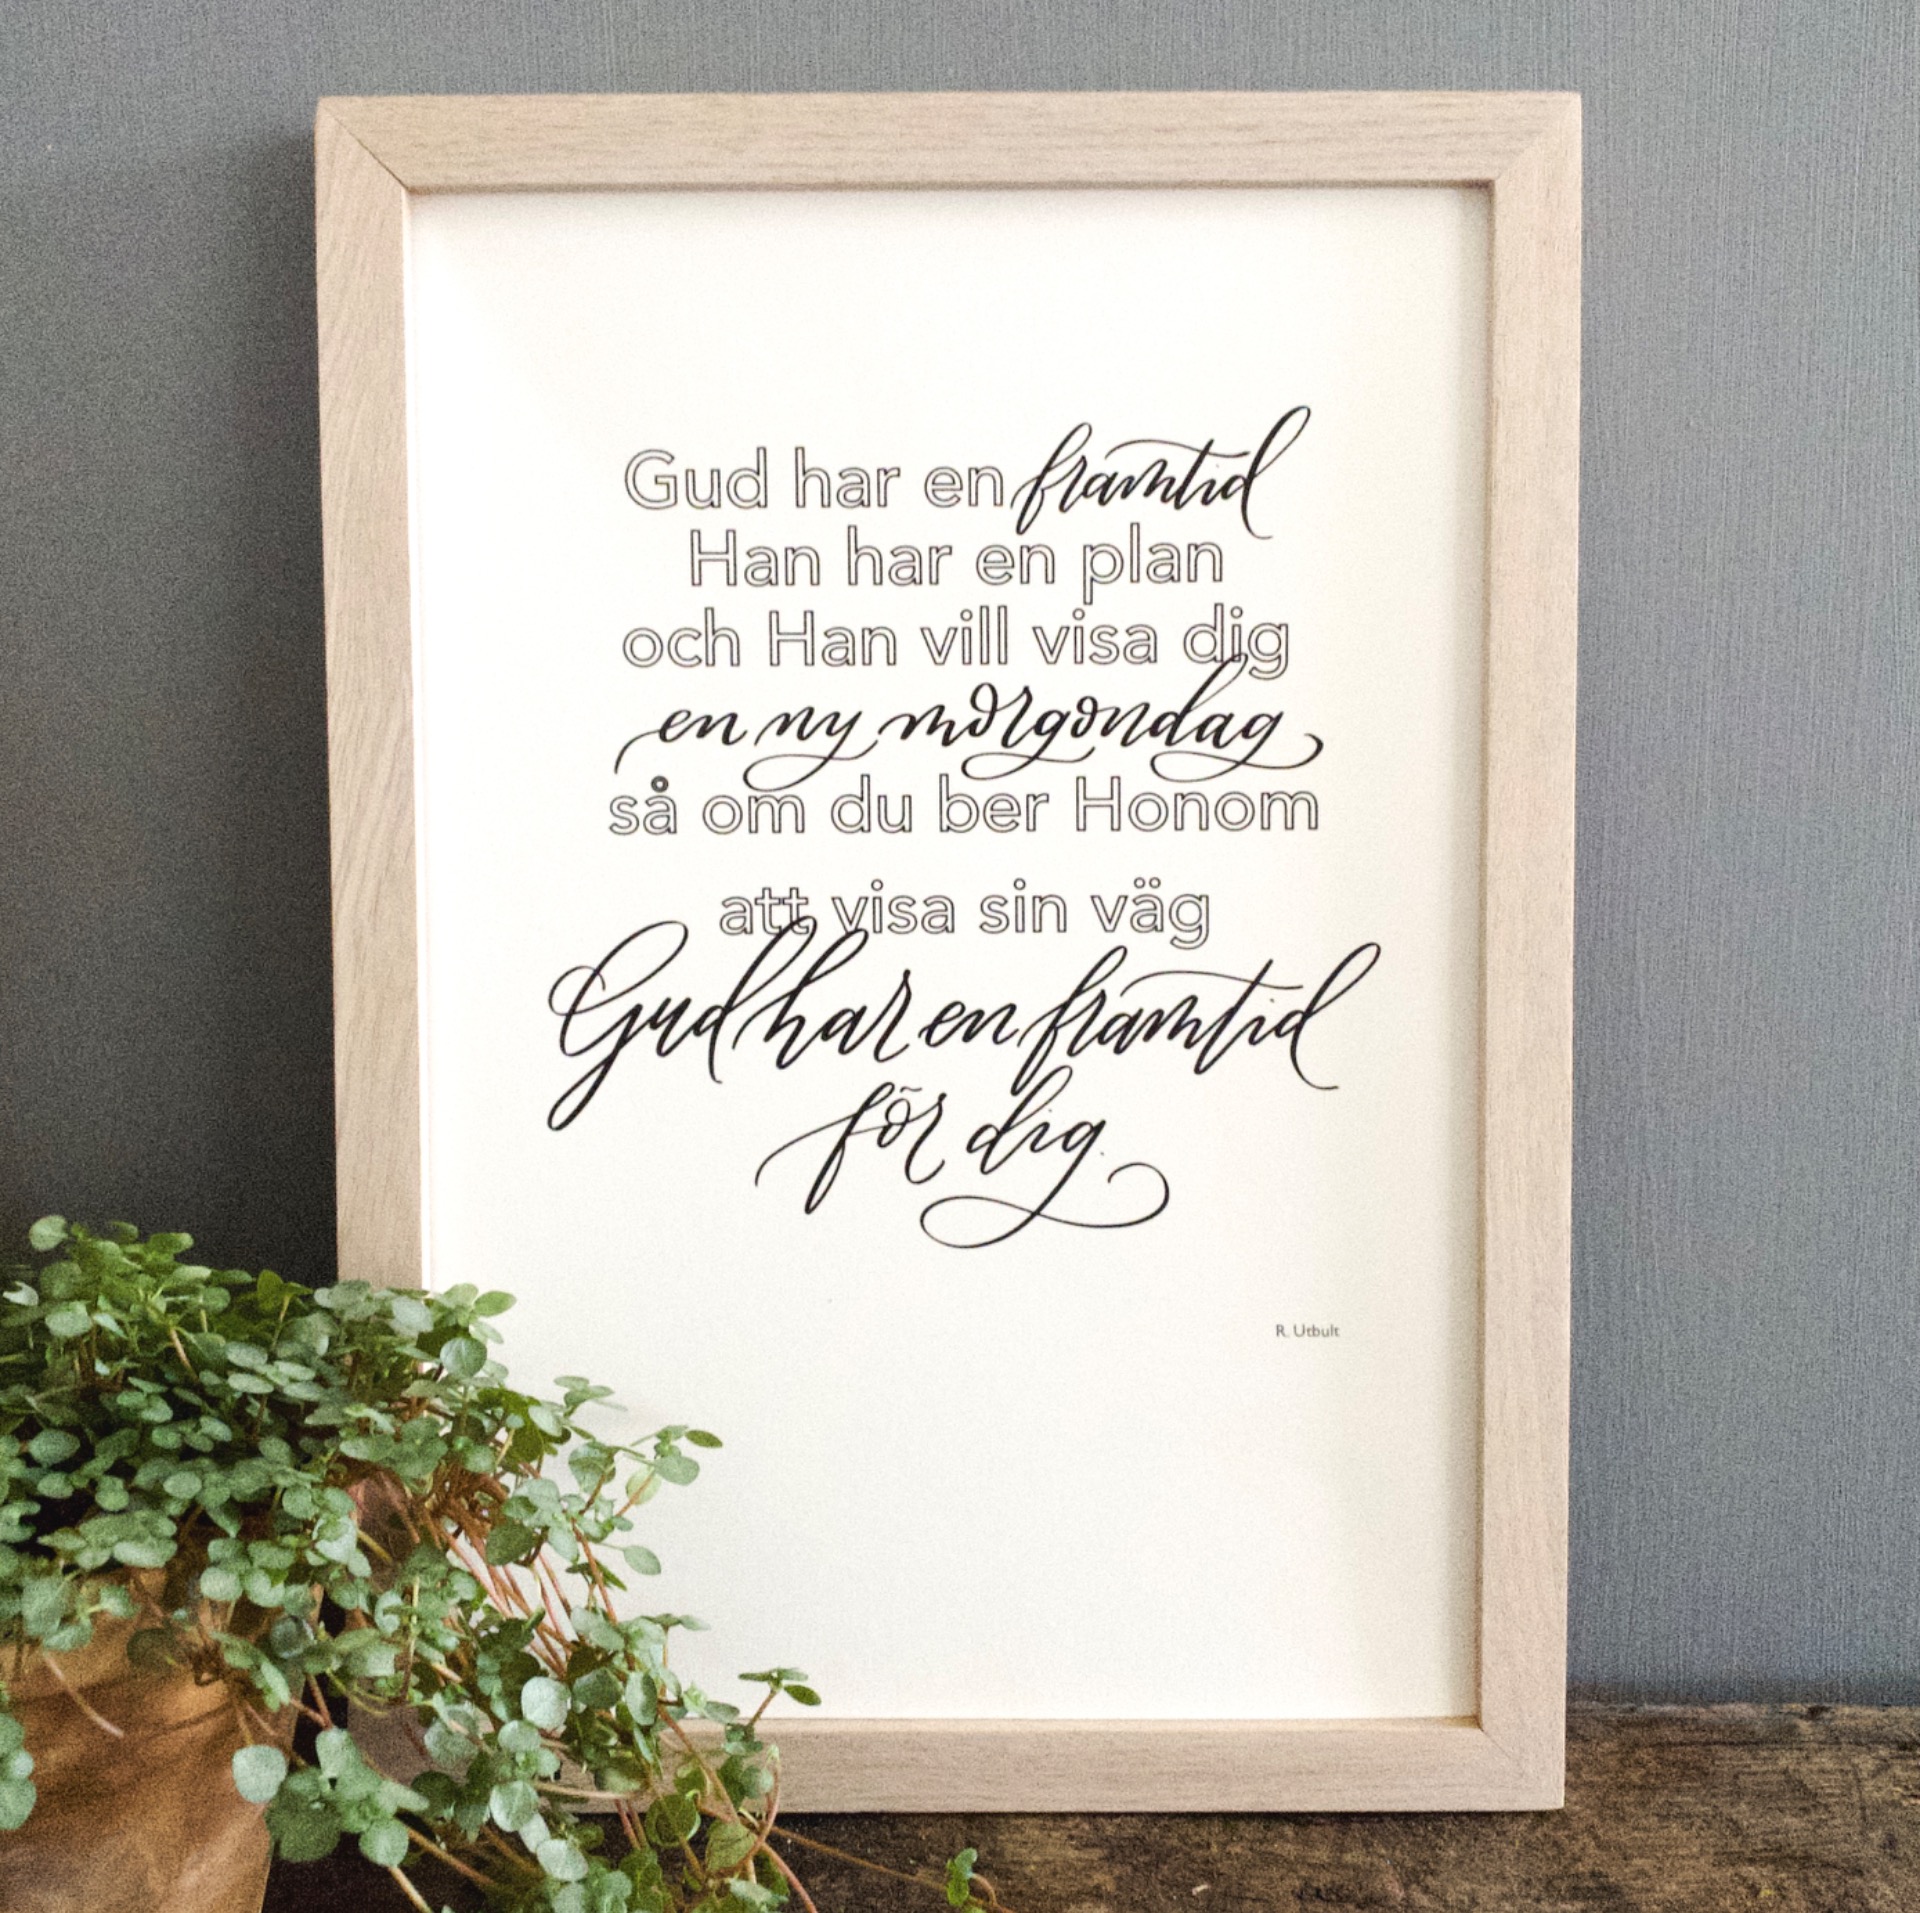 Gud har en framtid
Han har en plan
och Han vill visa dig
en ny morgondag
så om du ber Honom
att visa sin väg
Gud har en framtid
för dig.
R. Utbult